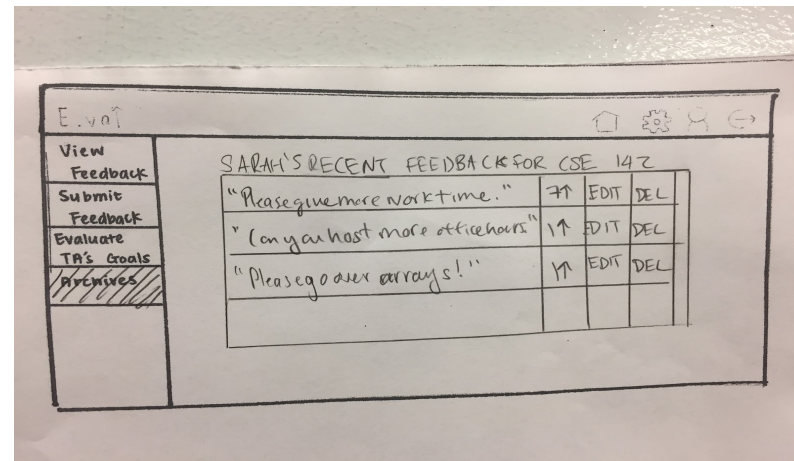 E.val
View
Feedback
Submit
Feedback
Evaluate
TA's Goals
Archives
SARAH'S RECENT FEEDBACK FOR CSE 142
"Please give more work time." 7↑ EDIT DEL
"Can you host more office hours" 1↑ EDIT DEL
"Please go over arrays!" 1↑ EDIT DEL